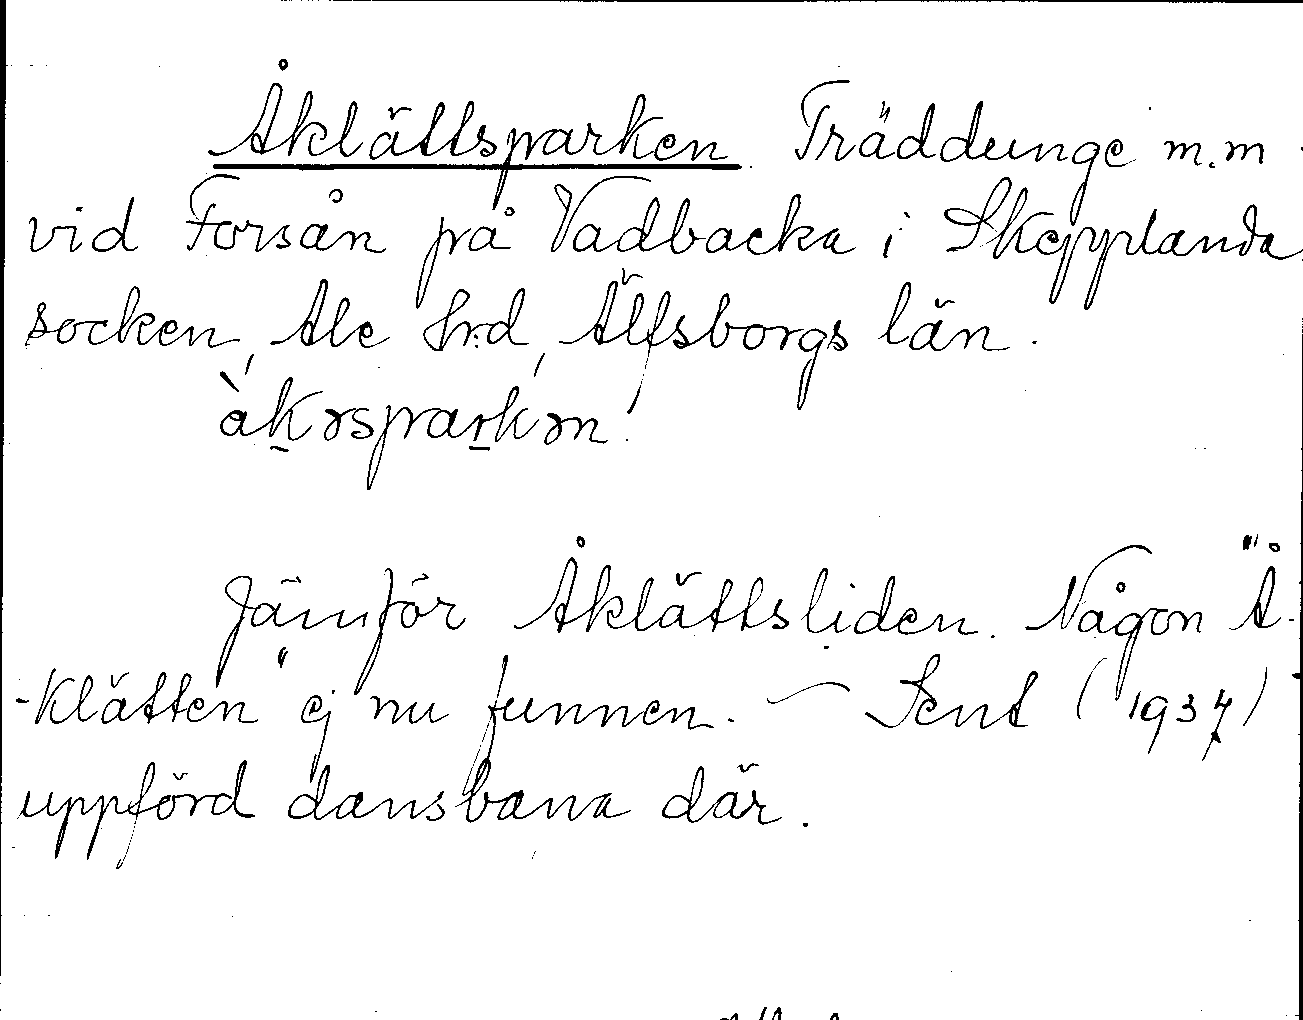 Åklättsparken. Träddunge m.m
vid Forsån på Vadbacka i Skepplanda
socken, Ale hrd, Älfsborgs län.
àkəsparkən.
Jämför Åklättsliden. Någon "Å-
-klätten" ej nu funnen. — Sent (1937)
uppförd dansbana där.